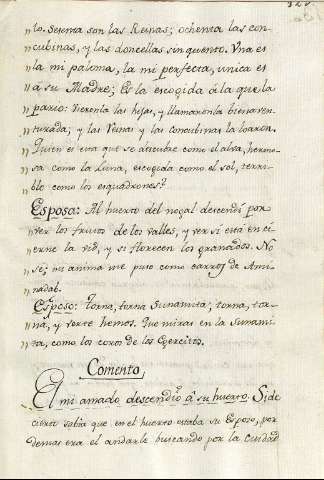 "to. Sesenta son las Reinas; ochenta las con-
"cubinas, y las doncellas sin quento. Vna es
"la mi paloma, la mi perfecta, unica es
"a su Madre; Es la escogida á la que la
"pario: Vieronla las hijas, y llamaronla bienaven-
"turada; y las Reinas y las concubinas la loaron.
"Quien es esta que se descubre como el alva, hermo-
"sa como la Luna, escogida como el sol, terri-
"ble como los esquadrones?
"Esposa: Al huerto del nogal descendí por
"ver los frutos de los valles, y ver si esta en ci-
"erne la vid, y si florecen los granados. No
"se; mi anima me puso como carros de Ami-
"nadab.
"Esposo: Torna, torna Sunamita; torna, tor-
"na, y verte hemos. Que mirais en la Sunami-
"ta, como los coros de los Exercitos.
Comento
El mi amado descendió á su huerto. Si de
cierto sabia que en el huerto estaba su Esposo, por
demas era el andarle buscando por la Ciudad